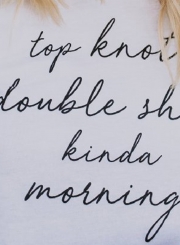 top knot
double sh
kinda
morning